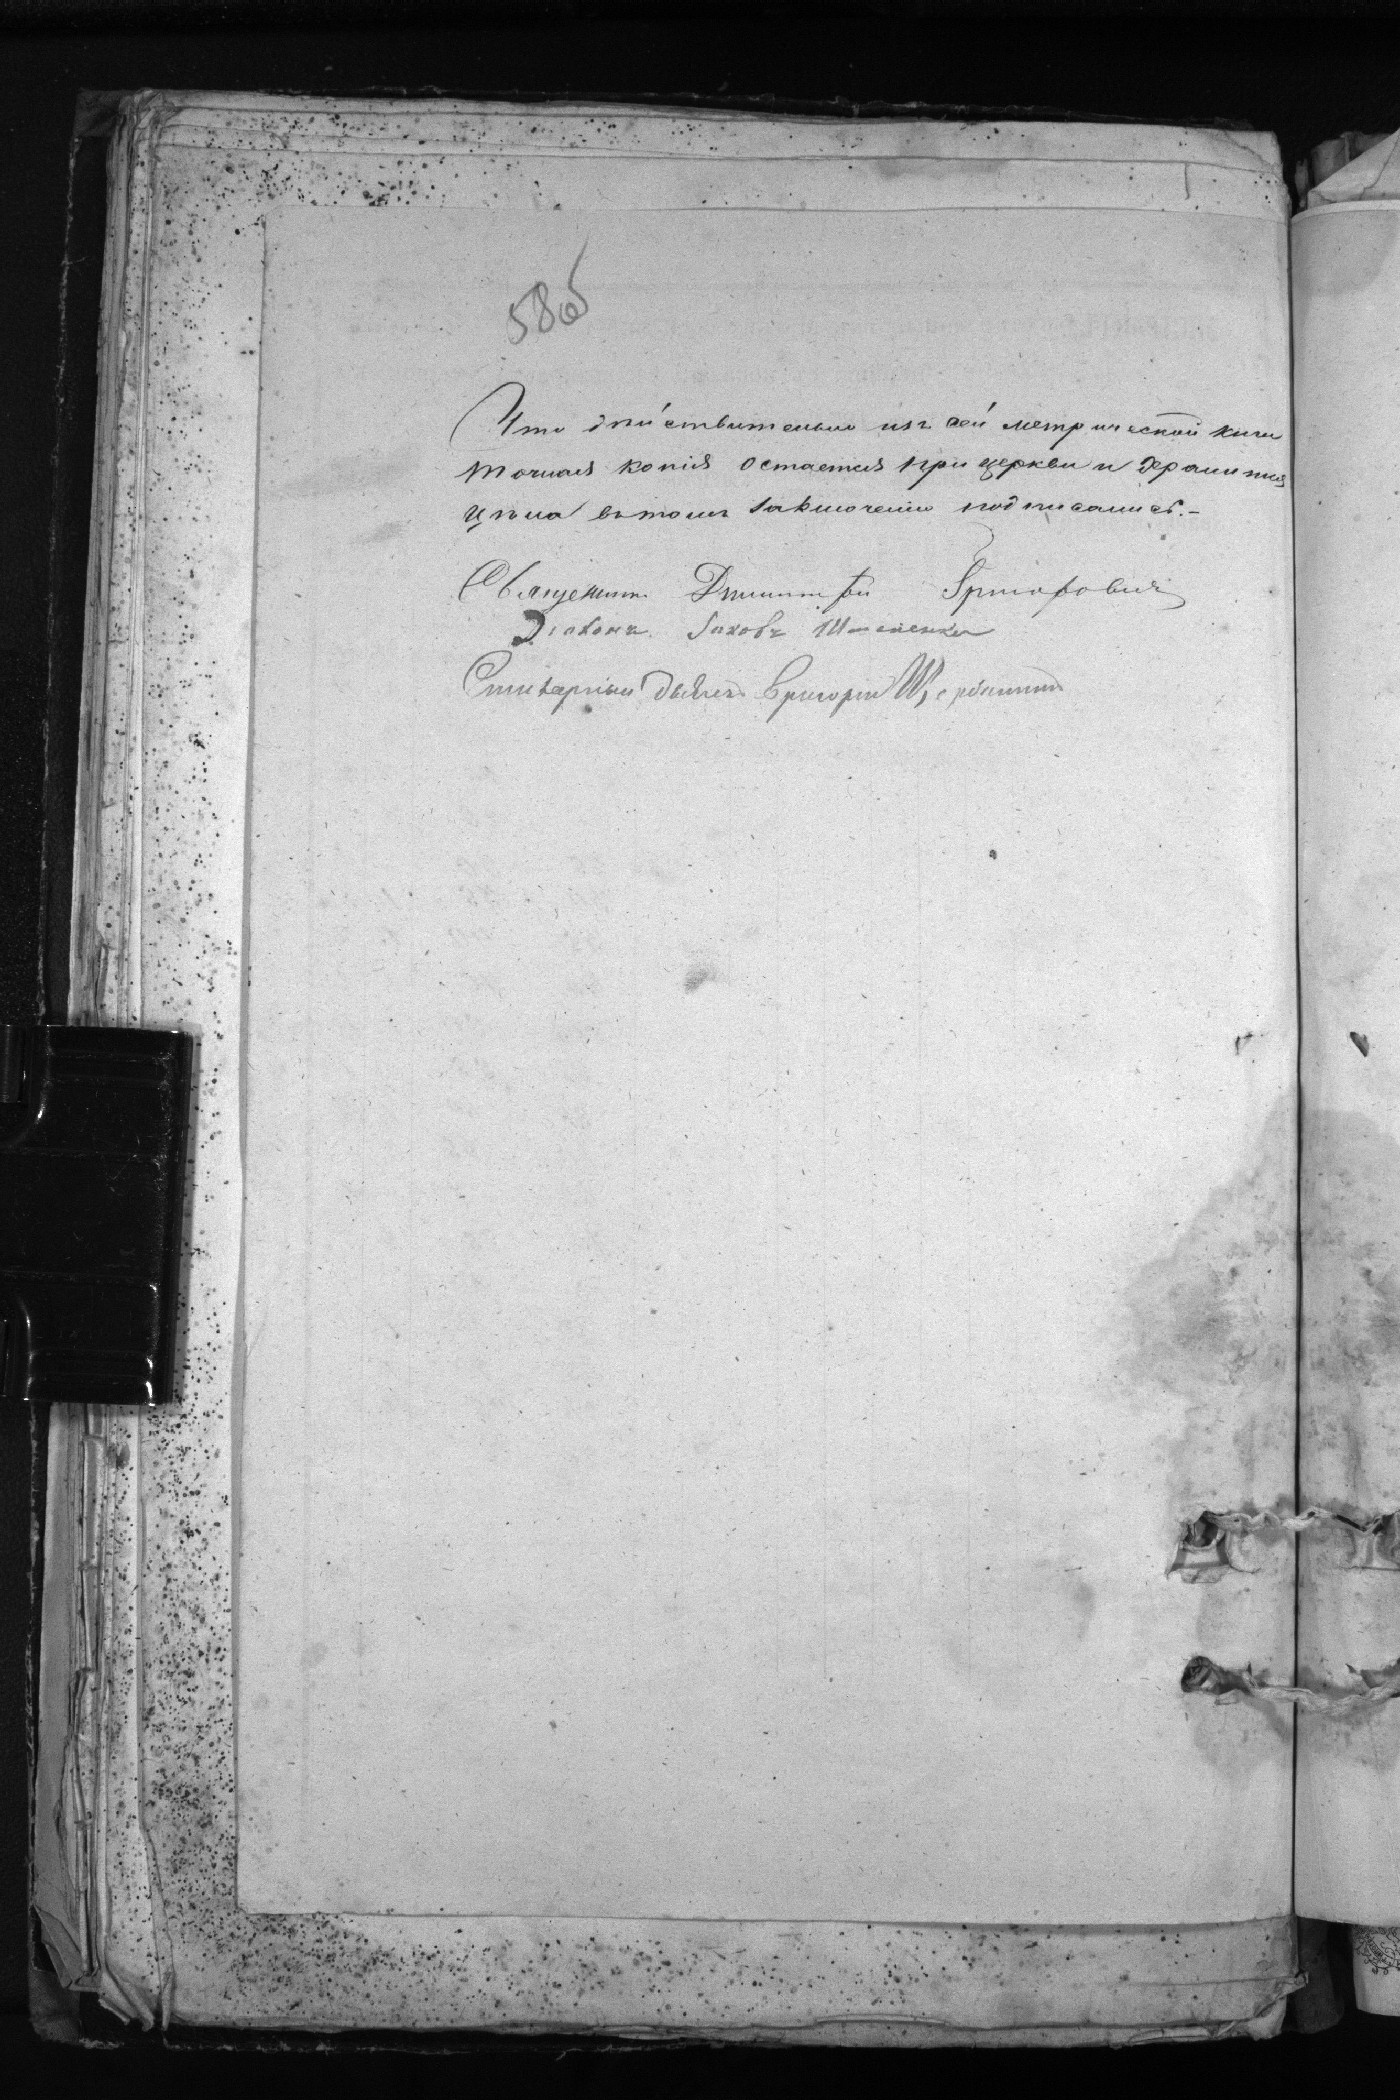 58об
Что дѣйствительно изъ сей метрической книги
точная копія остается при церкви и хранится
цѣла въ томъ заключеніи подписались.-
Священникъ Димитрій Григоровичъ
Діаконъ Іаковъ
дьячекъ Григорій